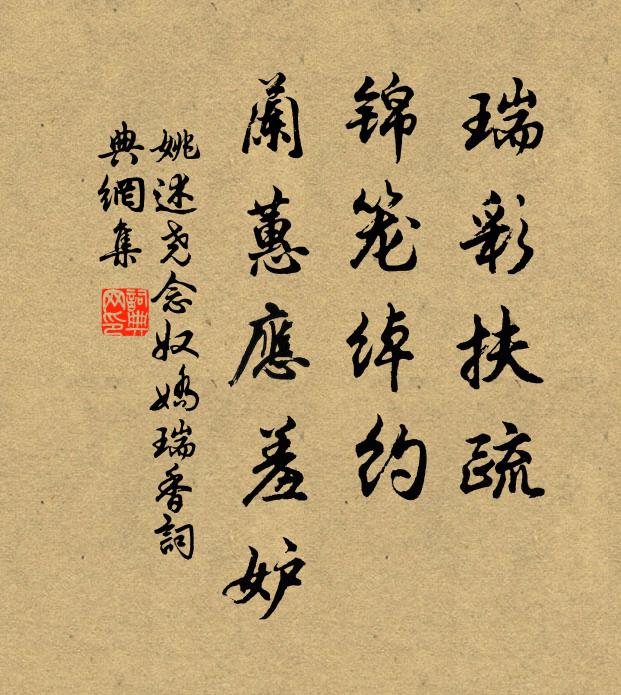 瑞彩扶疏
锦笼绰约
蘭蕙應羞妒
姚述尧念奴嬌瑞香詞
典網集
詞典网印